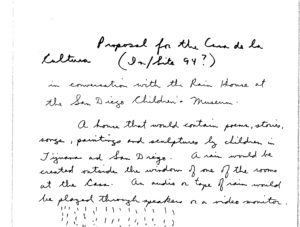 Proposal for the Casa de la
Cultura (In/Site 94?)
in conversation with the Rain House at
the San Diego Children's Museum.
A house that would contain poems, stories,
songs, paintings and sculptures by children in
Tijuana and San Diego. A rain would be
created outside the window of one of the rooms
at the Casa. An audio or tape of rain would
be played through speakers or a video monitor.